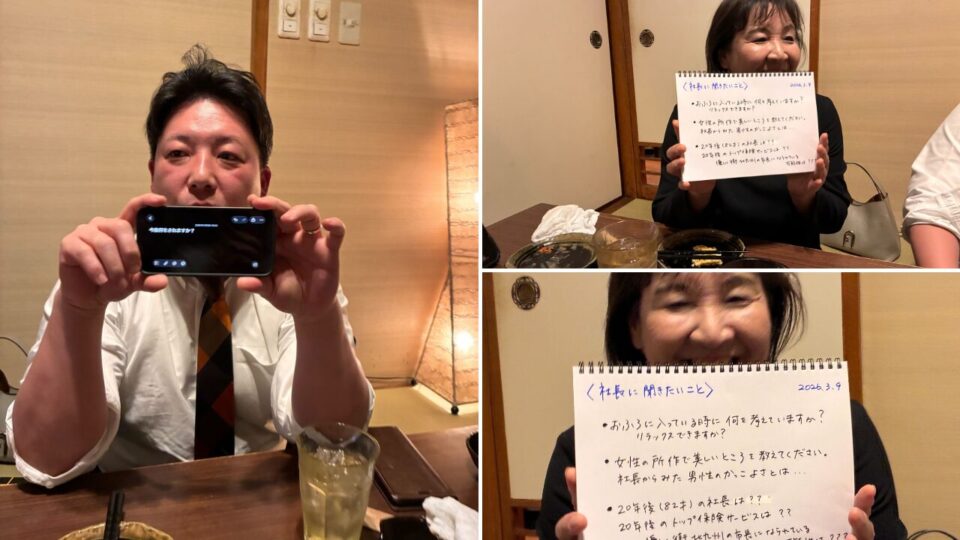 今後何をされますか?
〈社長に聞きたいこと〉 2026.3.9
•おふろに入っている時に何を考えていますか?
リラックスできますか?
•女性の所作で美しいところを教えてください。
社長からみた男性のかっこよさとは…
•20年後(82才)の社長は??
20年後のトップ保険サービスは??
優しい街北九州の市長になられている
可能性は???
〈社長に聞きたいこと〉 2026.3.9
•おふろに入っている時に何を考えていますか?
リラックスできますか?
•女性の所作で美しいところを教えてください。
社長からみた男性のかっこよさとは…
•20年後(82才)の社長は??
20年後のトップ保険サービスは??
優しい街北九州の市長になられている